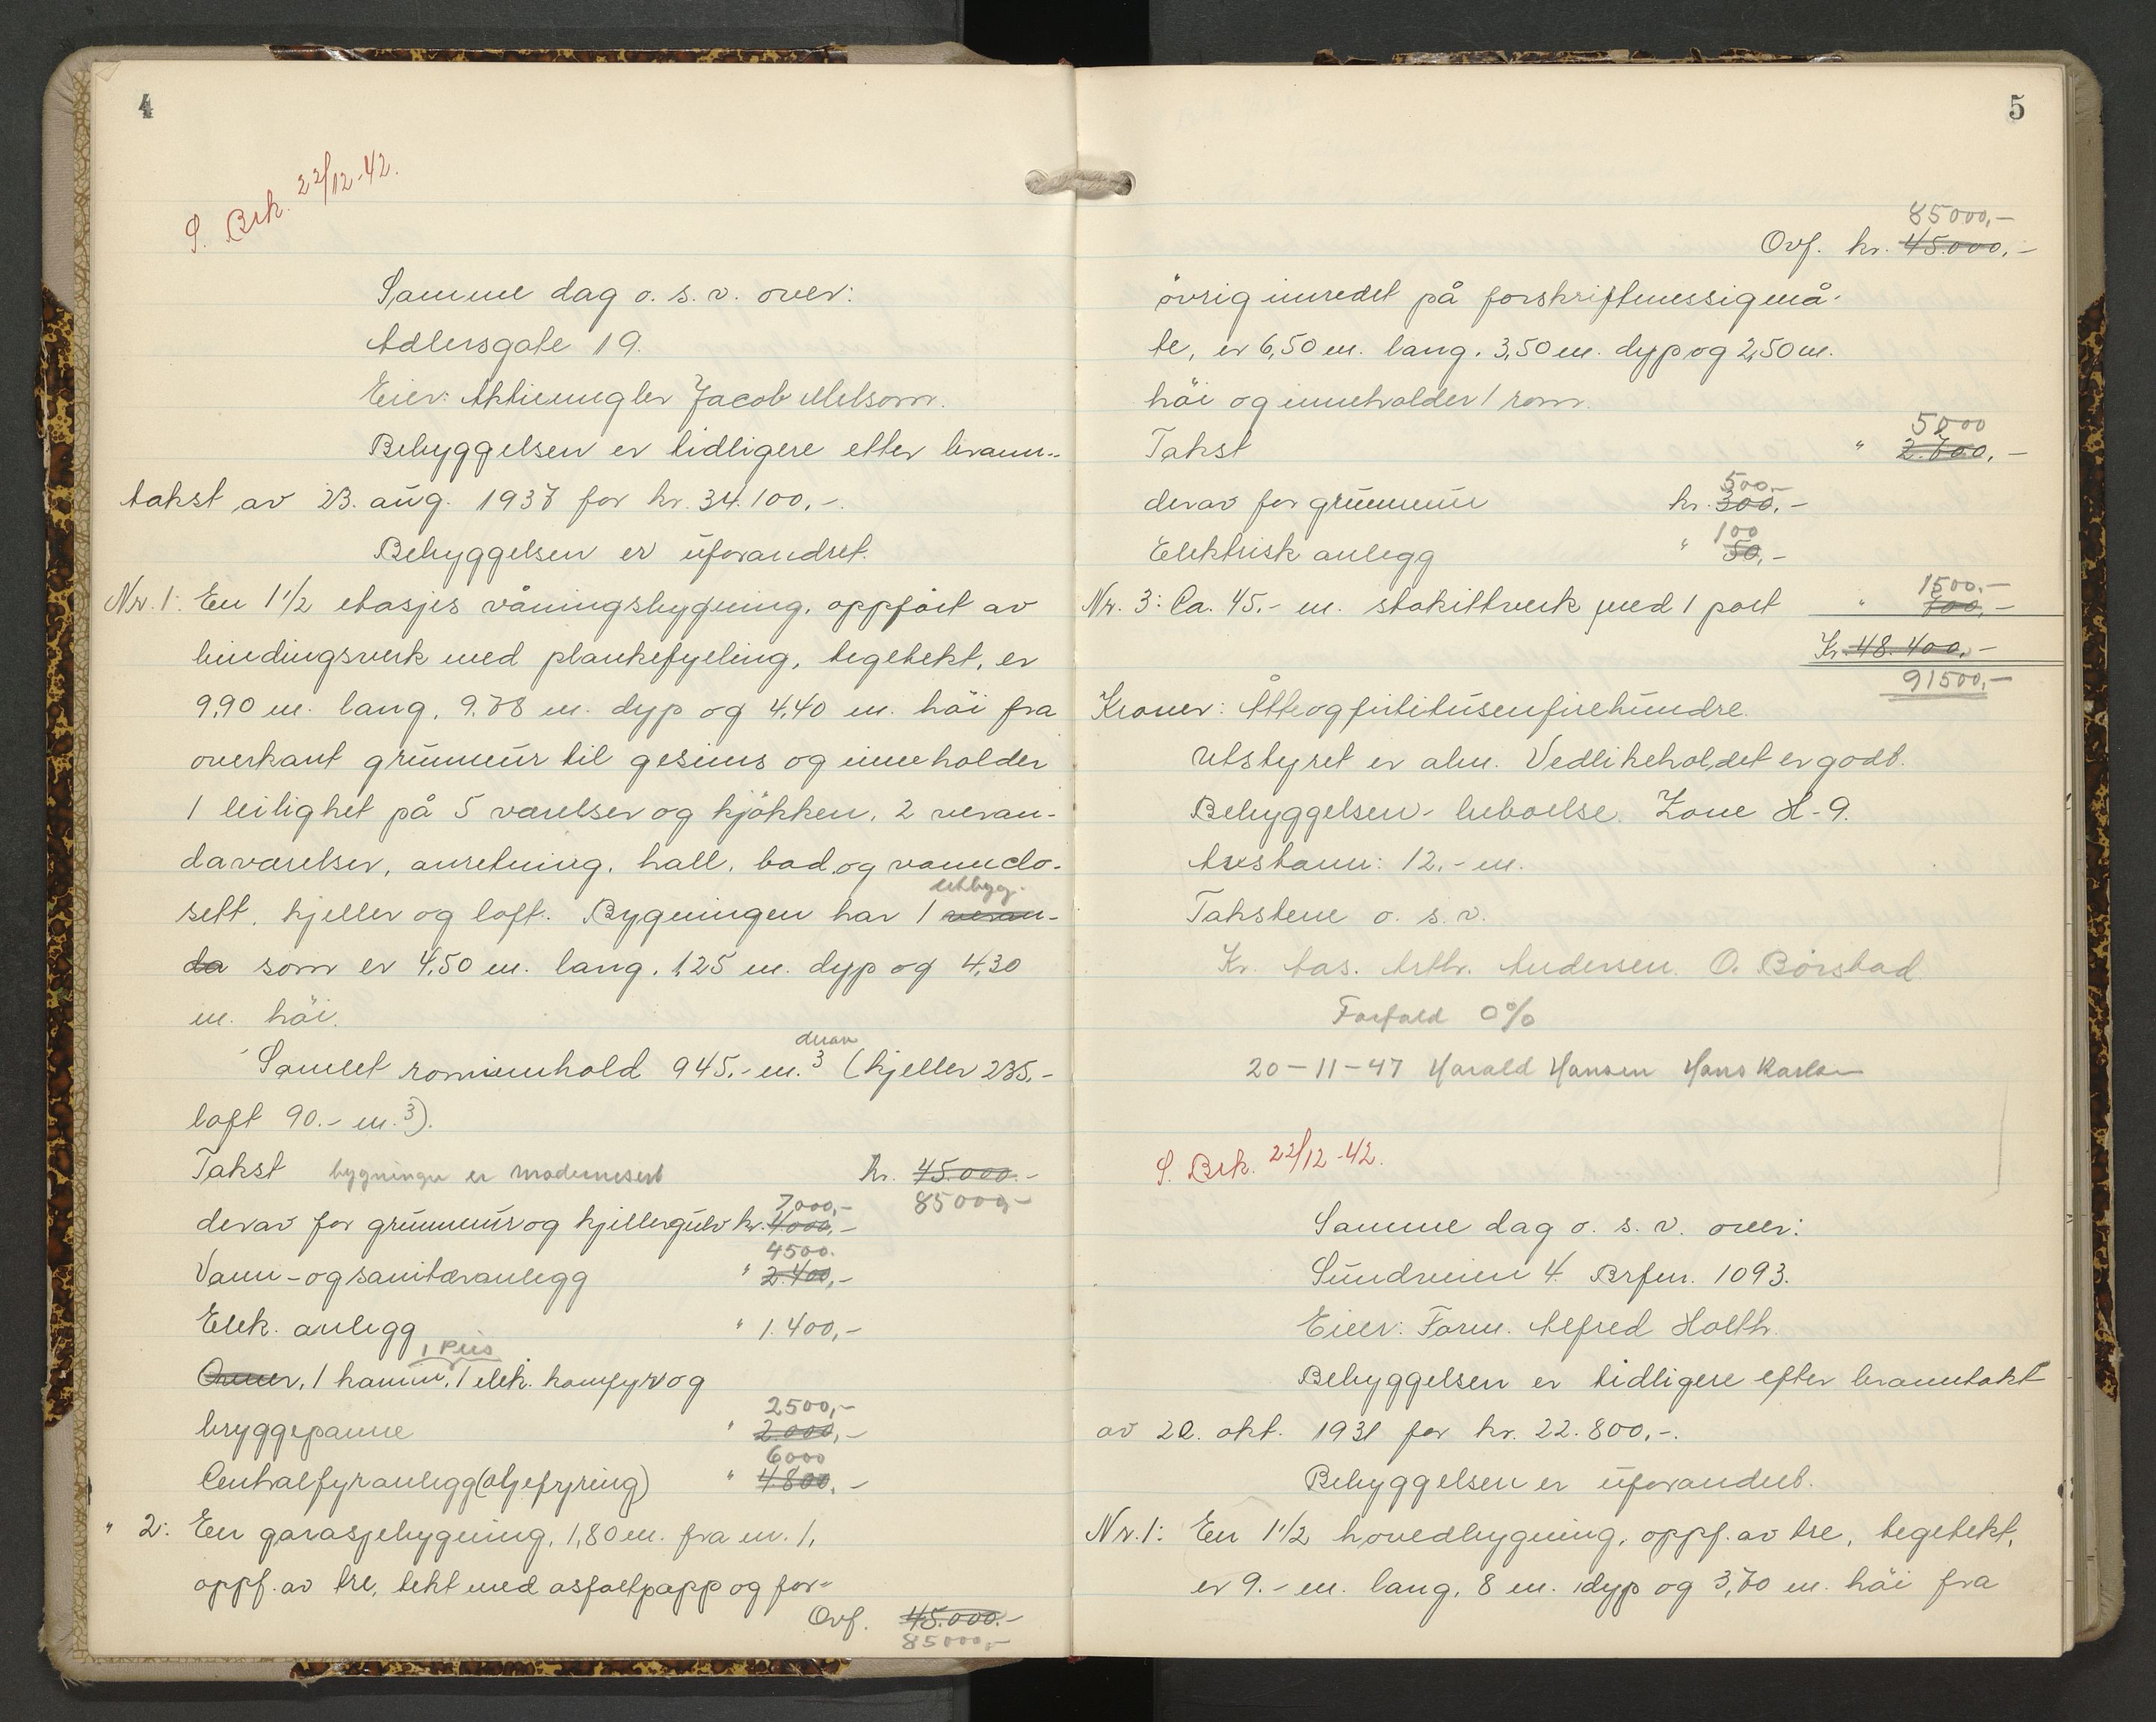 4
S. Brk. 22/12-42.
Samme dag o. s. v. over:
Adlersgate 19.
Eier: Aktiemegler Jacob Melsom.
Behyggelsen er tidligere etter brann-
takst av 23. aug. 1937 for kr. 34.100,-.
Behyggelsen er uforandret.
Nr. 1: En 1 1/2 etasjes våningsbygning, oppfört av
bindingsverk med plankefylling, tegltekt, er
9,90 m. lang, 9.78 m. dyp og 4,40 m. höi fra
overkant grunmur til gesims og inneholder
1 leilighet på 5 værelser og kjökken, 2 veran-
daværelser, anretning, hall, bad og vannclo-
utbygg.
sett, kjeller og loft. Bygningen har 1 veran-
da som er 4,50 m. lang, 1,25 m. dyp og 4,30
m. höi.
derav
Samlet rominnhold 945,- m.3 (kjeller 235,-
loft 90.- m.3).
Takst bygningen er modernesert kr. 45.000.-
7000,- 85000,-
derav for grunmur og kjellergulv kr. 4000,-
4500.
Vann- og sanitæranlegg " 2.400,-
Elek. anlegg " 1.400,-
1 Peis
Ovner, 1 kamin, 1 elek. komfyr og
2500,-
bryggepanne " 2.000,-
6000
Centralfyranlegg (oljefyring) " 4.800,-
" 2: En garasjebygning, 1,80 m. fra nr. 1,
oppf. av tre, tekt med asfaltpapp og for-
Ovf. 45.000.-
85000,-
5
85000,-
Ovf. kr. 45.000,-
övrig innredet på forskriftmessig må-
te, er 6,50 m. lang, 3,50 m. dyp og 2,50 m.
höi og inneholder 1 rom.
5000
Takst " 2.700,-
500,-
derav for grunmur kr. 300,-
100
Elektrisk anlegg " 50,-
1500.-
Nr. 3: Ca. 45.- m. stakittverk med 1 port " 700,-
Kr. 48.400,-
91500,-
Kroner: Åtteogførtitusenfirehundre.
Utstyret er alm. Vedlikeholdet er godt.
Behyggelsen - beboelse. Zone H-9.
Avstann: 12,- m.
Takstene o. s. v.
Kr. Aas. Arth. Andersen. O. Börstad.
Forfald 0%
20-11-47 Harald Hansen Hans Karlsen
S. Brk. 22/12-42.
Samme dag o. s. v. over:
Sundveien 4. Brfnr. 1093.
Eier: Form. Alfred Holth.
Behyggelsen er tidligere efter branntakst
av 20. okt. 1931 for kr. 22.800,-.
Behyggelsen er uforandret.
Nr. 1: En 1 1/2 hovedbygning, oppf. av tre, tegltekt,
er 9.- m. lang, 8 m. dyp og 3,70 m. höi fra